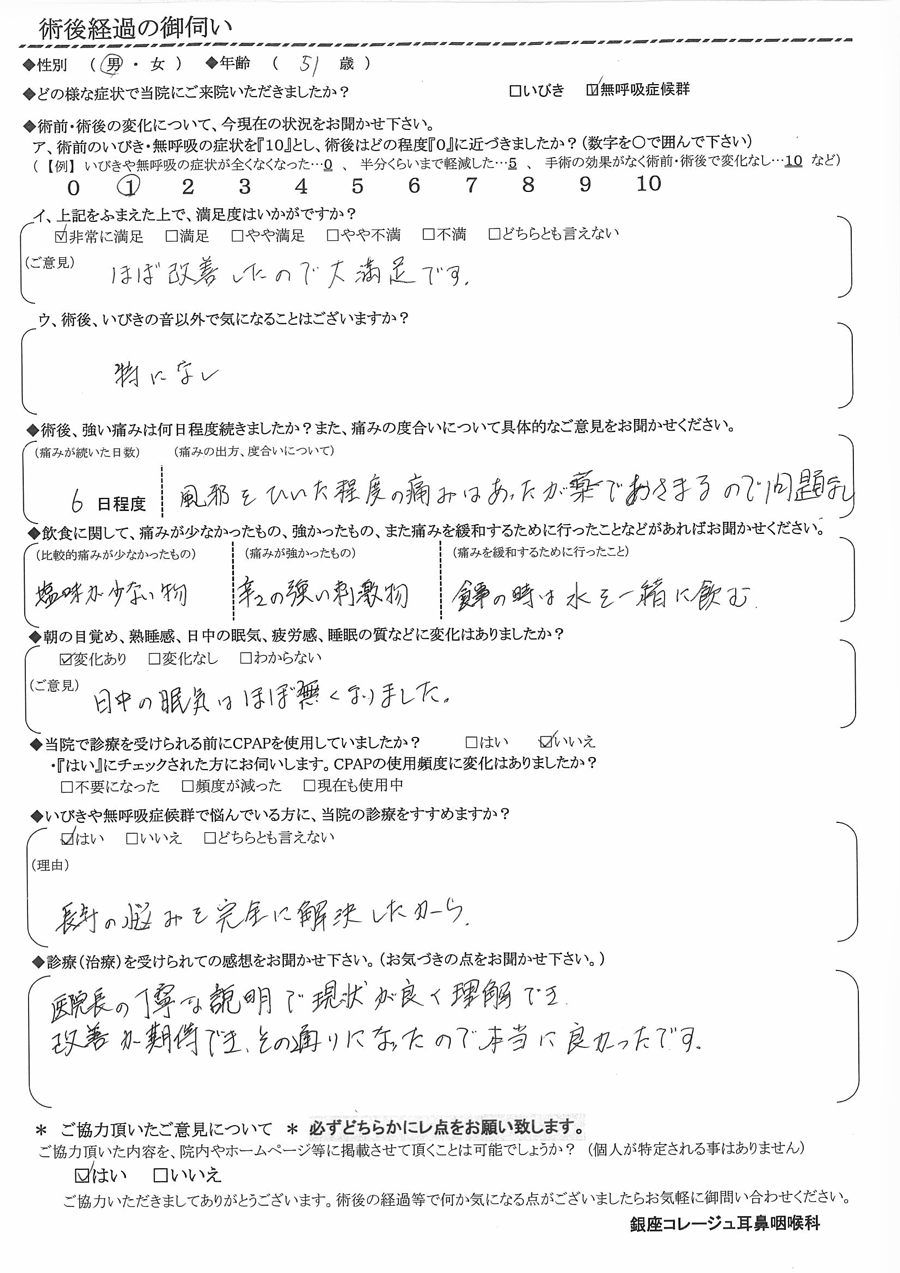 術後経過の御伺い
◆性別 （ 男 ・ 女 ） ◆年齢 （ 51 歳 ）
◆どの様な症状で当院にご来院いただきましたか？ □いびき ☑無呼吸症候群
◆術前・術後の変化について、今現在の状況をお聞かせ下さい。
ア、術前のいびき・無呼吸の症状を『10』とし、術後はどの程度『0』に近づきましたか？（数字を〇で囲んで下さい）
（【例】いびきや無呼吸の症状が全くなくなった…0 、 半分くらいまで軽減した…5 、 手術の効果がなく術前・術後で変化なし…10 など）
0 1 2 3 4 5 6 7 8 9 10
イ、上記をふまえた上で、満足度はいかがですか？
☑非常に満足 □満足 □やや満足 □やや不満 □不満 □どちらとも言えない
（ご意見） ほぼ改善したので大満足です.
ウ、術後、いびきの音以外で気になることはございますか？
特になし
◆術後、強い痛みは何日程度続きましたか？また、痛みの度合いについて具体的なご意見をお聞かせください。
（痛みが続いた日数） （痛みの出方、度合いについて）
6 日程度 風邪をひいた程度の痛みはあったが薬でおさまるので問題なし
◆飲食に関して、痛みが少なかったもの、強かったもの、また痛みを緩和するために行ったことなどがあればお聞かせください。
（比較的痛みが少なかったもの） （痛みが強かったもの） （痛みを緩和するために行ったこと）
塩味が少ない物 辛みの強い刺激物 食事の時は水を一緒に飲む.
◆朝の目覚め、熟睡感、日中の眠気、疲労感、睡眠の質などに変化はありましたか？
☑変化あり □変化なし □わからない
（ご意見） 日中の眠気はほぼ無くなりました。
◆当院で診療を受けられる前にCPAPを使用していましたか？ □はい ☑いいえ
・『はい』にチェックされた方にお伺いします。CPAPの使用頻度に変化はありましたか？
□不要になった □頻度が減った □現在も使用中
◆いびきや無呼吸症候群で悩んでいる方に、当院の診療をすすめますか？
☑はい □いいえ □どちらとも言えない
（理由）
長年の悩みを完全に解決したから.
◆診療（治療）を受けられての感想をお聞かせ下さい。（お気づきの点をお聞かせ下さい。）
医院長の丁寧な説明で現状が良く理解でき.
改善が期待でき、その通りになったので本当に良かったです.
＊ ご協力頂いたご意見について ＊ 必ずどちらかにレ点をお願い致します。
ご協力頂いた内容を、院内やホームページ等に掲載させて頂くことは可能でしょうか？（個人が特定される事はありません）
☑はい □いいえ
ご協力いただきましてありがとうございます。術後の経過等で何か気になる点がございましたらお気軽に御問い合わせください。
銀座コレージュ耳鼻咽喉科